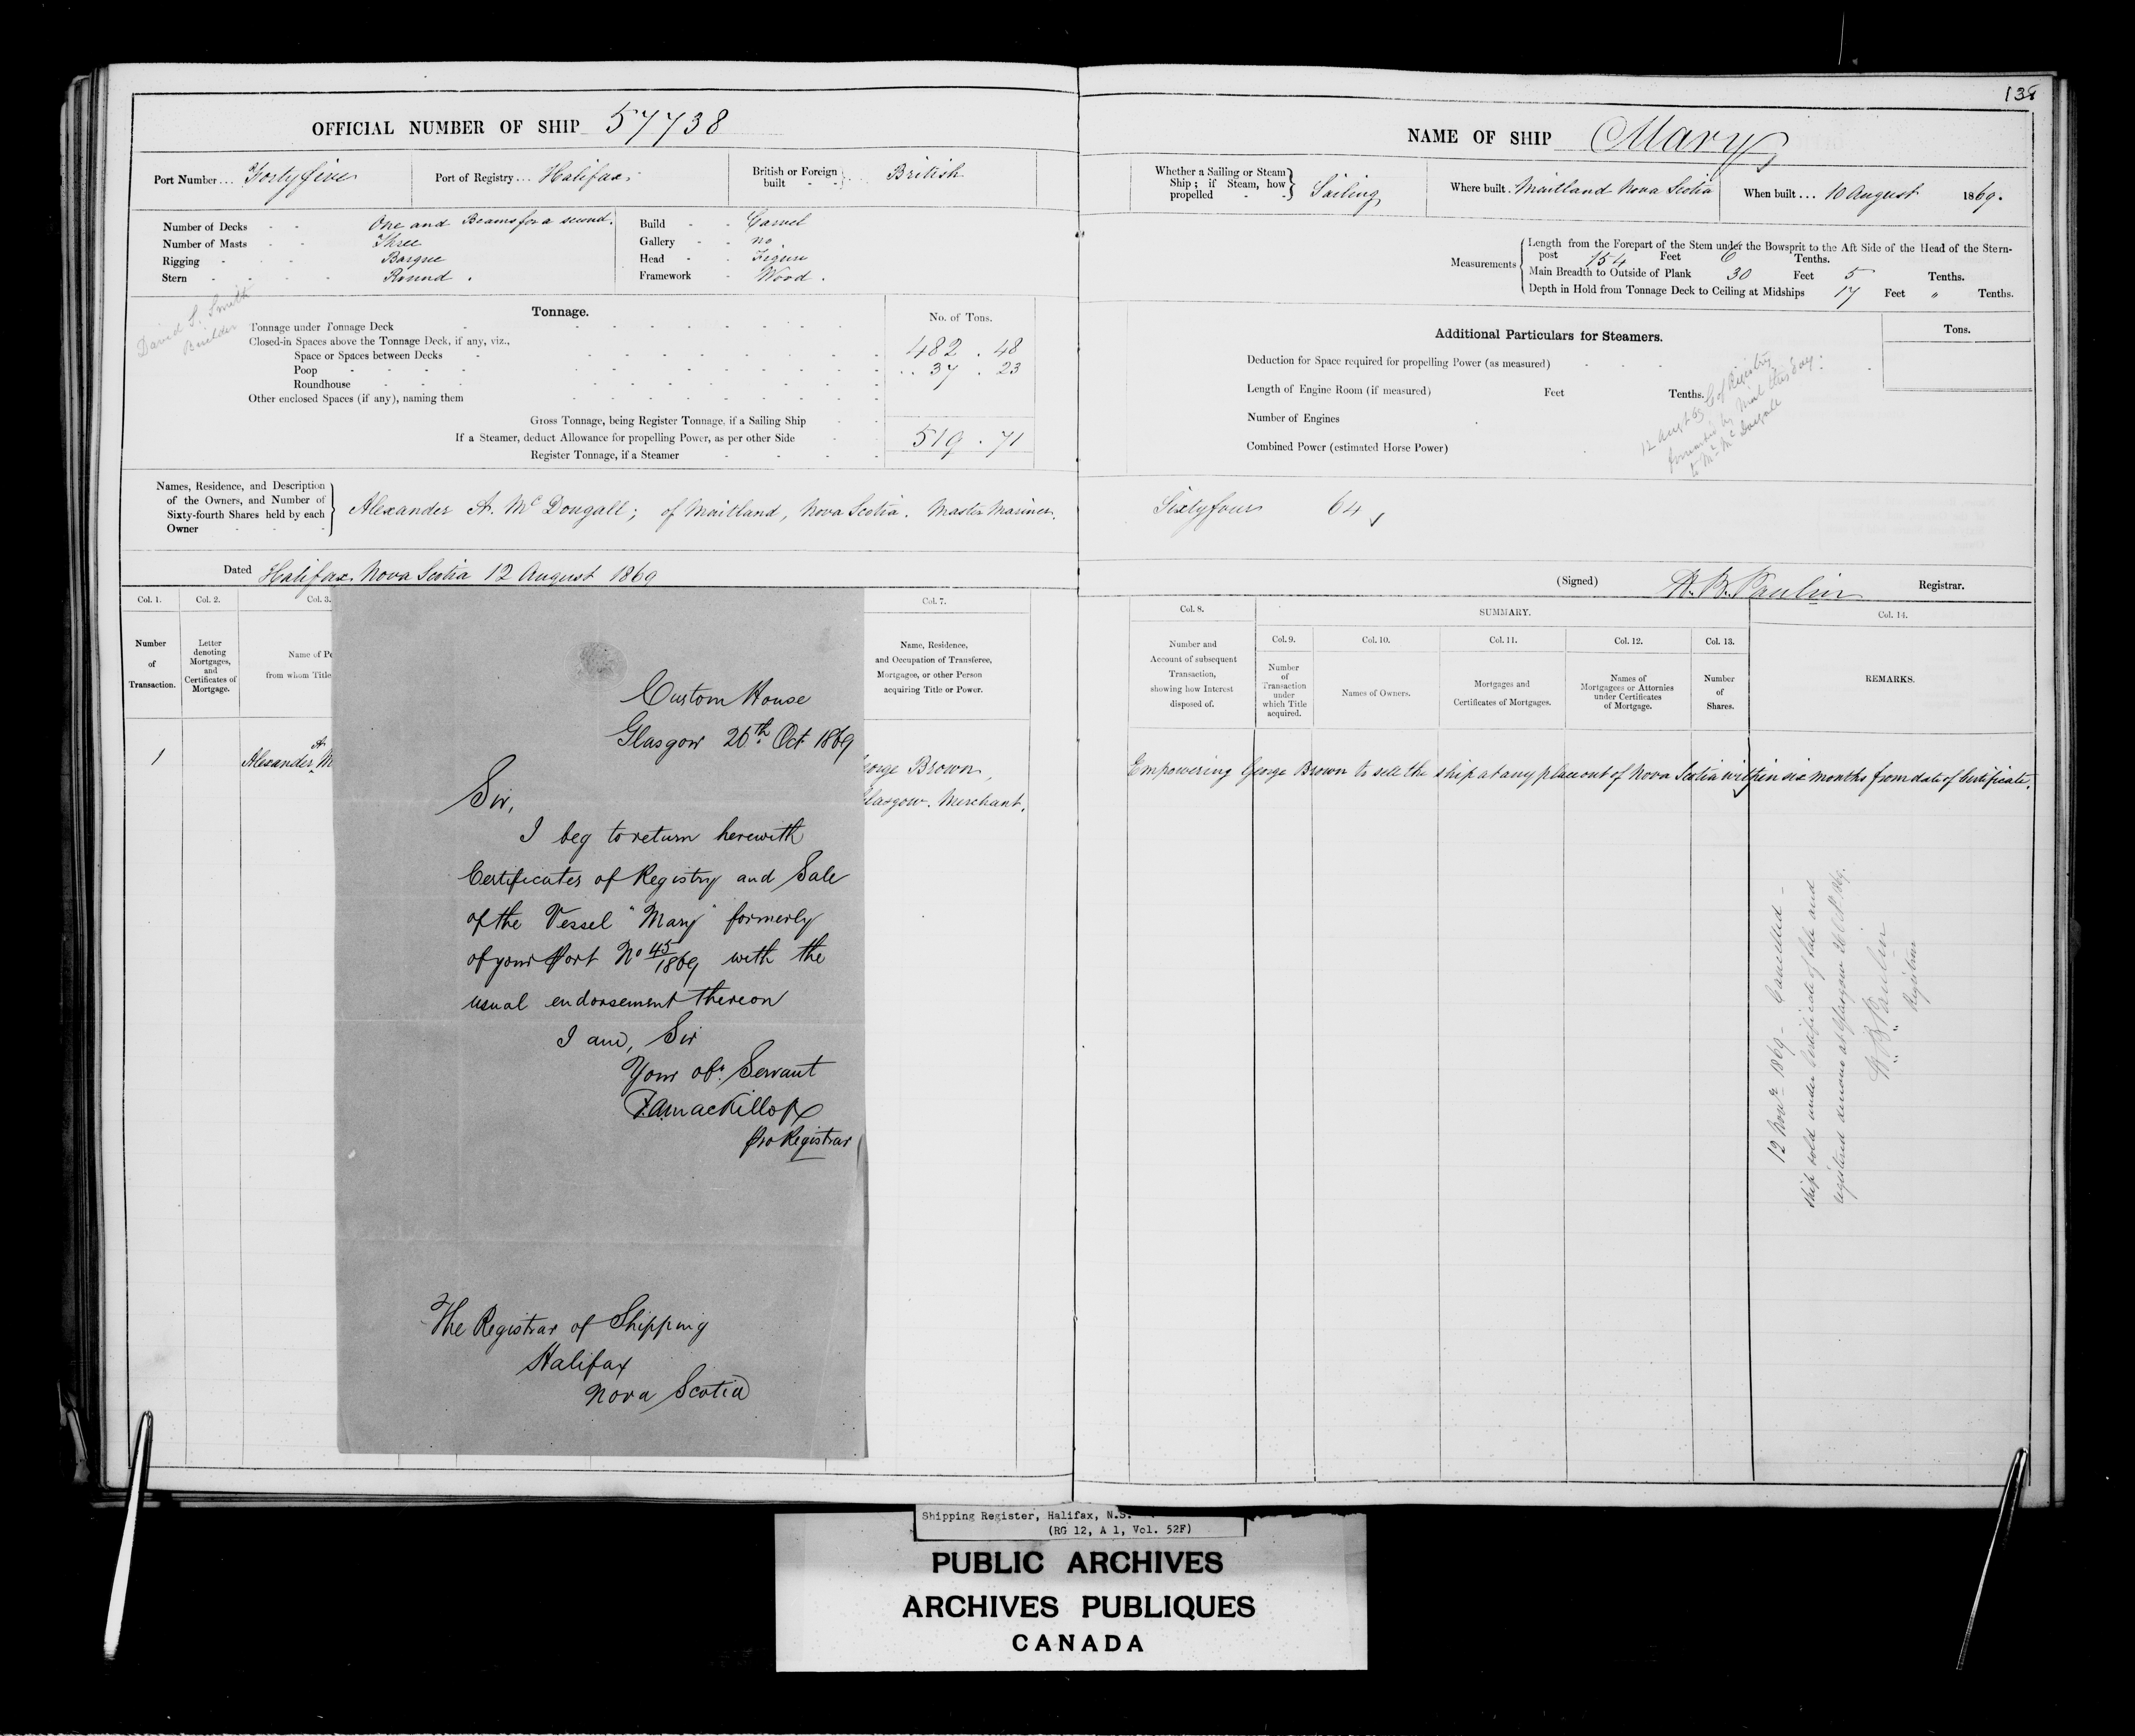 138
OFFICIAL NUMBER OF SHIP 57738
Port Number... Fortyfive
Port of Registry... Halifax.
British or Foreign built - - } British
Number of Decks - - One and Beams for a second.
Number of Masts - - Three
Rigging - - - Barque
Stern - - - - Round.
Build - - Carvel
Gallery - - no
Head - - Figure
Framework - Wood.
David S. Smith
Builder
Tonnage.
No. of Tons.
Tonnage under Tonnage Deck
Closed-in Spaces above the Tonnage Deck, if any, viz.,
482 . 48
Space or Spaces between Decks
Poop
37 . 23
Roundhouse
Other enclosed Spaces (if any), naming them
Gross Tonnage, being Register Tonnage, if a Sailing Ship
If a Steamer, deduct Allowance for propelling Power, as per other Side
519 . 71
Register Tonnage, if a Steamer
Names, Residence, and Description
of the Owners, and Number of
Sixty-fourth Shares held by each
Owner
Alexander A. Mc Dougall; of Maitland, Nova Scotia. Master Mariner.
Dated Halifax Nova Scotia 12 August 1869
Col. 1.
Col. 2.
Col. 3.
Col. 7.
Number
of
Transaction.
Letter
denoting
Mortgages,
and
Certificates of
Mortgage.
Name of Pe
from whom Title
Name, Residence,
and Occupation of Transferee,
Mortgagee, or other Person
acquiring Title or Power.
1
Alexander A. M
eorge Brown,
Glasgow. Merchant.
Custom House
Glasgow 26th Oct 1869
Sir,
I beg to return herewith
Certificates of Registry and Sale
of the Vessel "Mary" formerly
of your Port No 45/1869 with the
usual endorsement thereon
I am, Sir
Your obt. Servant
MacKillop
pro Registrar
The Registrar of Shipping
Halifax
Nova Scotia
NAME OF SHIP Mary
Whether a Sailing or Steam
Ship; if Steam, how
propelled - - } Sailing
Where built. Maitland Nova Scotia
When built... 10 August 1869.
Measurements
Length from the Forepart of the Stem under the Bowsprit to the Aft Side of the Head of the Stern-
post 154 Feet 6 Tenths.
Main Breadth to Outside of Plank 30 Feet 5 Tenths.
Depth in Hold from Tonnage Deck to Ceiling at Midships 17 Feet " Tenths.
Additional Particulars for Steamers.
Tons.
Deduction for Space required for propelling Power (as measured)
Length of Engine Room (if measured) Feet Tenths.
Number of Engines
Combined Power (estimated Horse Power)
12 Augt 69 C of Registry
forwarded by Mail this day.
to Mr McDougall
Sixtyfour 64
(Signed) H. B. Paulin Registrar.
Col. 8.
SUMMARY.
Col. 14.
Col. 9.
Col. 10.
Col. 11.
Col. 12.
Col. 13.
Number and
Account of subsequent
Transaction,
showing how Interest
disposed of.
Number
of
Transaction
under
which Title
acquired.
Names of Owners.
Mortgages and
Certificates of Mortgages.
Names of
Mortgagees or Attornies
under Certificates
of Mortgage.
Number
of
Shares.
REMARKS.
Empowering George Brown to sell the ship at any place out of Nova Scotia within six months from date of Certificate.
12 Novr 1869 - Cancelled -
ship sold under Certificate of Sale and
registered de novo at Glasgow 26 Oct. 1869.
H. B. Paulin
Registrar
Shipping Register, Halifax, N.S.
(RG 12, A 1, Vol. 52F)
PUBLIC ARCHIVES
ARCHIVES PUBLIQUES
CANADA